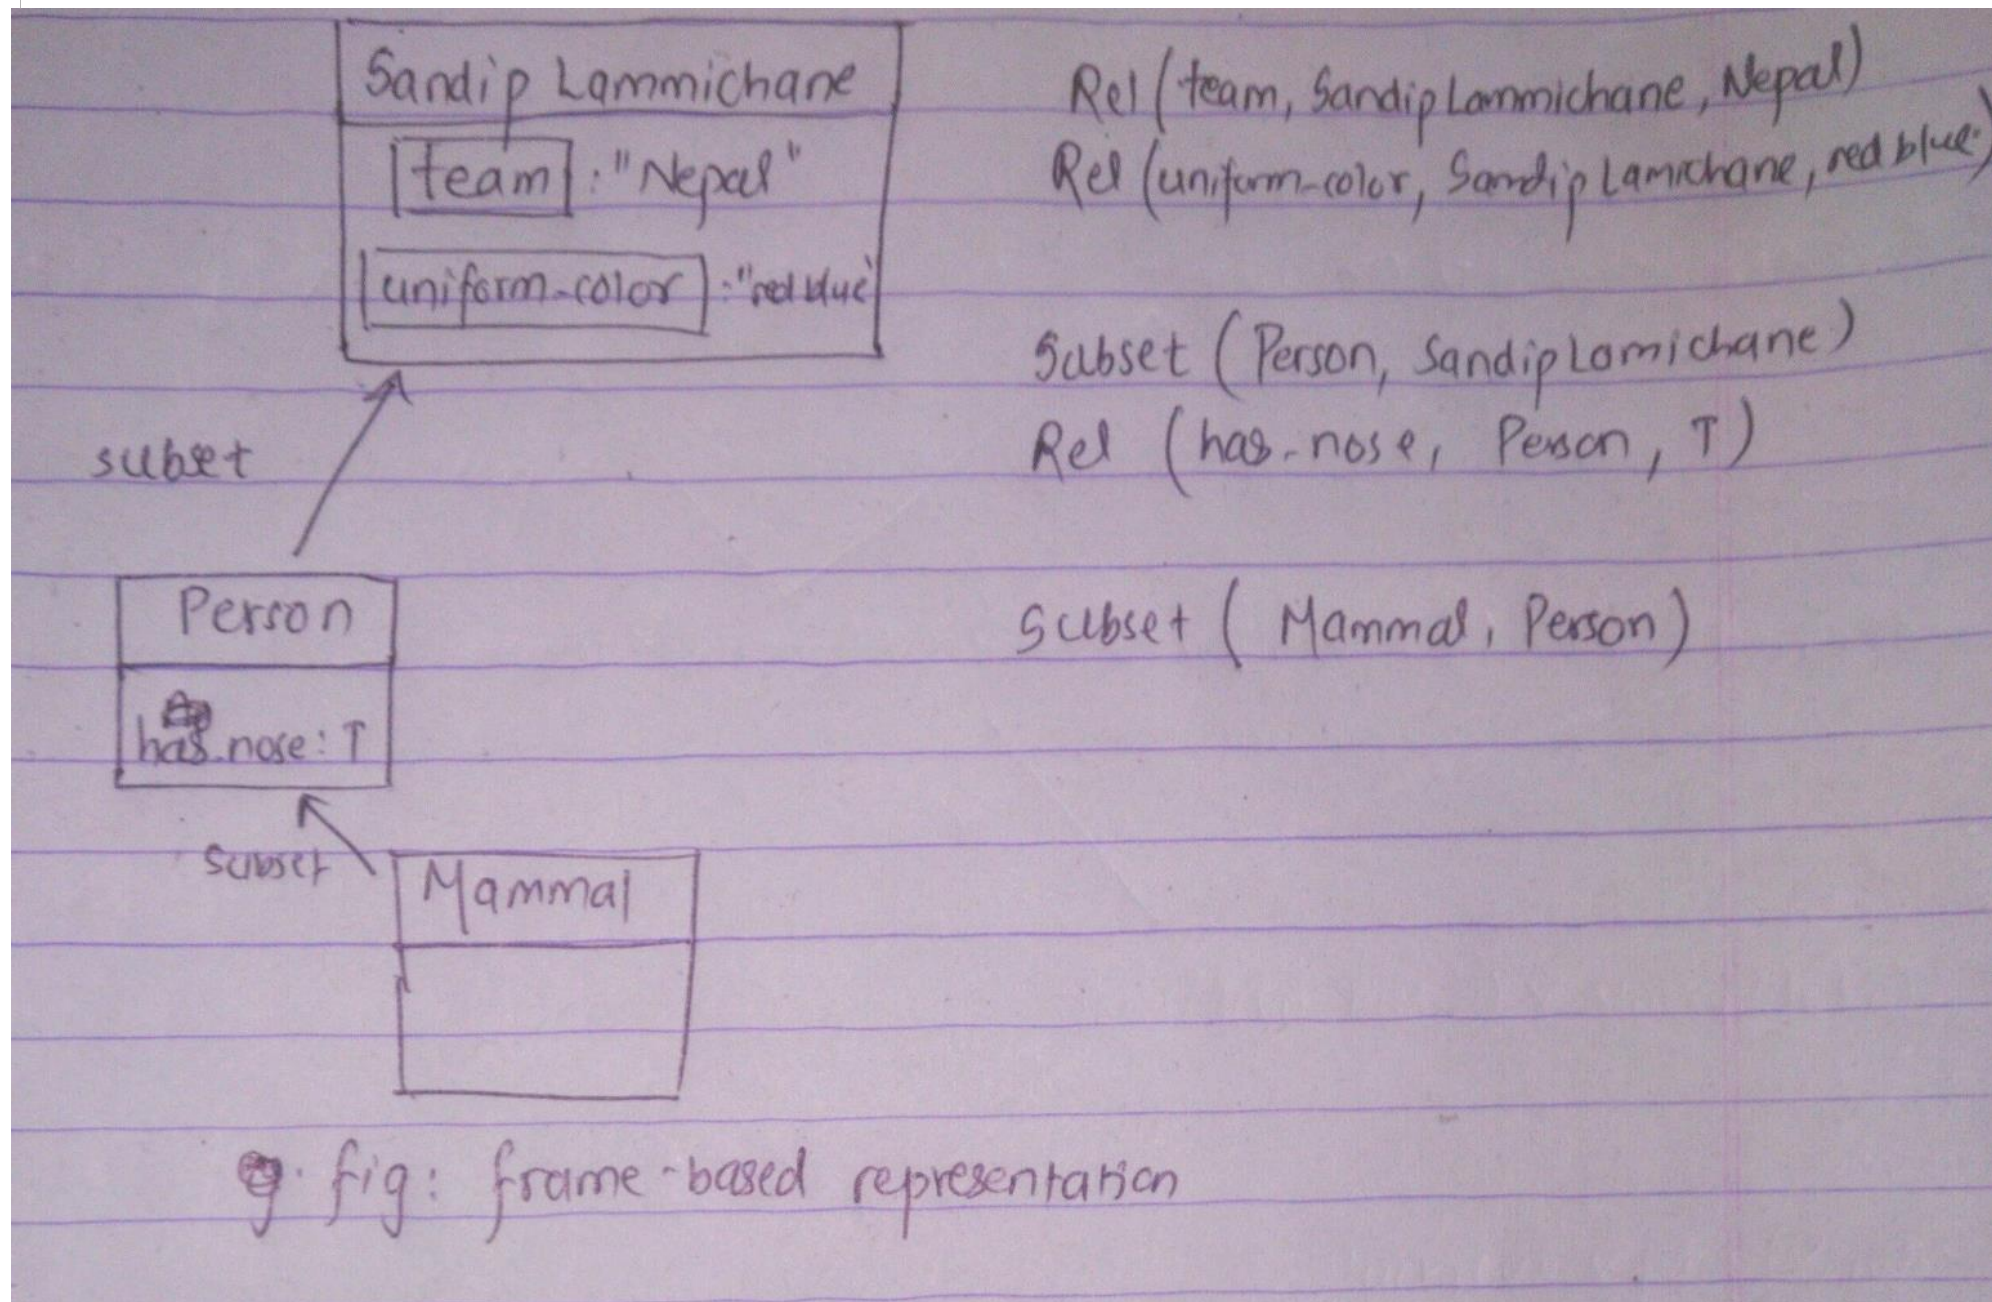 Sandip Lammichane
team : "Nepal"
uniform-color : "red blue"
subset
Person
has-nose : T
subset
Mammal
Rel (team, Sandip Lammichane, Nepal)
Rel (uniform-color, Sandip Lamichane, red blue)
Subset (Person, Sandip Lamichane)
Rel (has-nose, Person, T)
Subset (Mammal, Person)
fig: frame-based representation